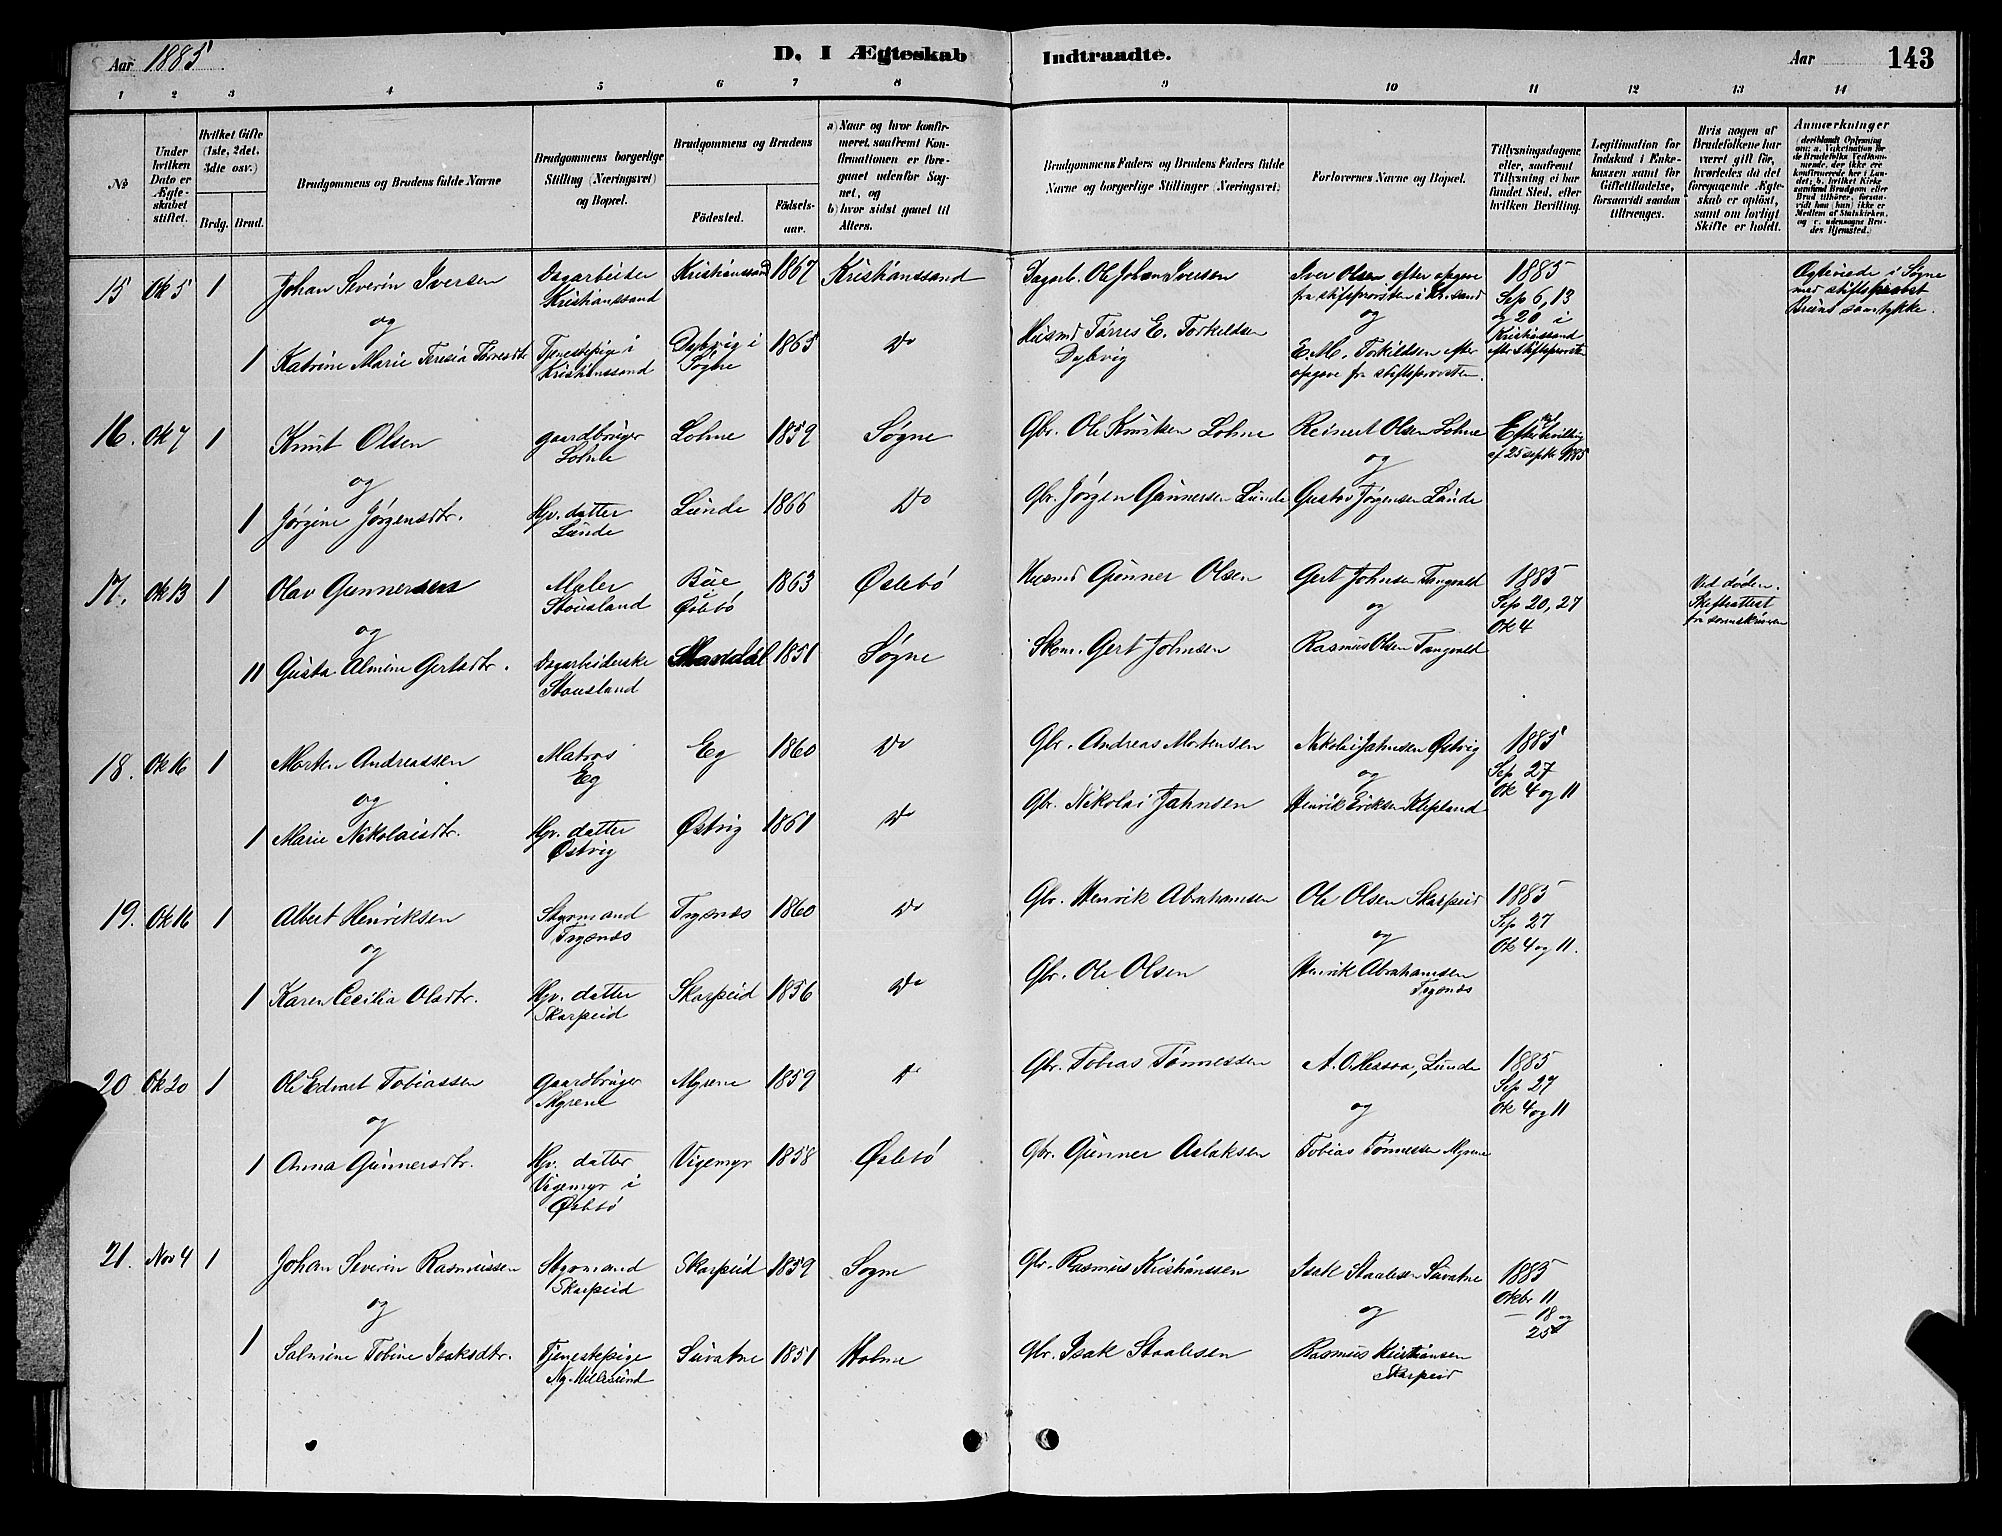 Aar 1885
D. I Ægteskab Indtraadte.
Aar
143
1 2 3 4 5 6 7 8 9 10 11 12 13 14
No
Under hvilken Dato er Ægteskabet stiftet.
Hvilket Gifte (1ste, 2det, 3dte osv.)
Brdg. Brud.
Brudgommens og Brudens fulde Navne
Brudgommens borgerlige Stilling (Næringsvei) og Bopæl.
Brudgommens og Brudens
Födested.
Födselsaar.
a) Naar og hvor konfirmeret, saafremt Konfirmationen er foregaaet udenfor Sognet, og
b) hvor sidst gaaet til Alters.
Brudgommens Faders og Brudens Faders fulde Navne og borgerlige Stillinger (Næringsvei)
Forlovernes Navne og Bopæl.
Tillysningsdagene eller, saafremt Tillysning ei har fundet Sted, efter hvilken Bevilling.
Legitimation for Indskud i Enkekassen samt for Giftetilladelse, forsaavidt saadan tiltrænges.
Hvis nogen af Brudefolkene har været gift för, hvorledes da det foregaaende Ægteskab er oplöst, samt om lovligt Skifte er holdt.
Anmærkninger
15 Ok 5 1 Johan Severin Iversen Dagarbeider Kristianssand 1867 Kristianssand Dagarb. Ole Johan Iversen Iver Olsen efter opgave 1885 Ægteviede i Søgne
Kristianssand fra stiftsprovsten i Kr.sand Sep 6, 13 med stiftsprovst
og og og 20 i Bruns samtykke.
1 Katrine Marie Teresia Tørresdtr Tjenestepige i Dybvig i 1865 Do Husmd Tørres E. Torkildsen E. M. Torkildsen efter Kristianssand
Kristianssand Søgne Dybvig opgave fra stiftsprovsten. efter stiftsprovsten
16. Ok 7 1 Knut Olsen gaardbruger Lohne 1859 Søgne Gbr. Ole Knutsen Lohne Reinert Olsen Lohne Efter bevilling
Lohne af 25 septbr 1885
og og
1 Jørgine Jørgensdtr. Gbr. datter Lunde 1866 Do Gbr. Jørgen Gunnersen Lunde Gustav Jørgensen Lunde
Lunde
17. Ok 13 1 Olav Gunnersen Maler Büe i 1863 Øslebø Husmd Gunner Olsen Gert Johnsen Tangvald 1885 Ved døden.
Stousland Øslebø Sep 20, 27 Skifteattest
og og Ok 4
11 Gusta Almine Gertsdtr. Dagarbeiderske Mandal 1851 Søgne Skom. Gert Johnsen Rasmus Olsen Tangvald
Stousland
18. Ok 16 1 Morten Andreassen Matros Eg 1860 Do Gbr. Andreas Mortensen Nikolai Jahnsen Østvig 1885
Eg Sep 27
og og Ok 4 og 11
1 Marie Nikolaisdtr. Gbr. datter Østvig 1861 Do Gbr. Nikolai Jahnsen Henrik Eriksen Klepland
Østvig
19. Ok 16 1 Albert Henriksen Styrmand Trysnæs 1860 Do Gbr. Henrik Abrahamsen Ole Olsen Skarpeid 1885
Trysnæs Sep 27
og og Ok 4 og 11.
1 Karen Cecilia Olsdtr. Gbr. datter Skarpeid 1856 Do Gbr. Ole Olsen Henrik Abrahamsen
Skarpeid Trysnæs
20 Ok 20 1 Ole Edvart Tobiassen gaardbruger Myrene 1859 Do Gbr. Tobias Tønnessen Lunde 1885
Myrene Sep 27
og og Ok 4 og 11
1 Anna Gunnersdtr. Gbr. datter Vigemyr 1858 Øslebø Gbr. Gunner Aslaksen Tobias Tønnessen Myrene
Vigemyr i
Øslebø
21. Nov 4 1 Johan Severin Rasmussen Styrmand Skarpeid 1859 Søgne Gbr. Rasmus Kristianssen Isak Staalesen Suvatne 1885
Skarpeid Okbr 11
og og — 18 og
25
1 Salmine Tobine Isaksdtr. Tjenestepige Suvatne 1851 Holme Gbr. Isak Staalesen Rasmus Kristiansen
Skarpeid